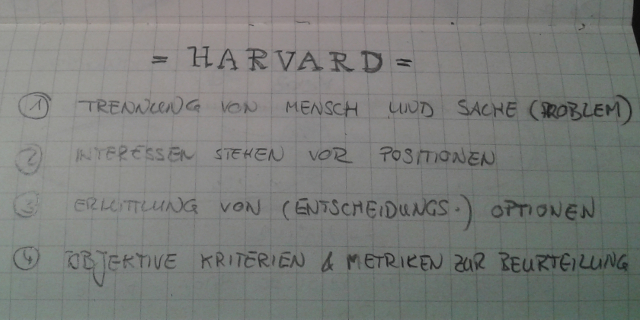 = HARVARD =
① TRENNUNG VON MENSCH UND SACHE (PROBLEM)
② INTERESSEN STEHEN VOR POSITIONEN
③ ERMITTLUNG VON (ENTSCHEIDUNGS-) OPTIONEN
④ OBJEKTIVE KRITERIEN & METRIKEN ZUR BEURTEILUNG